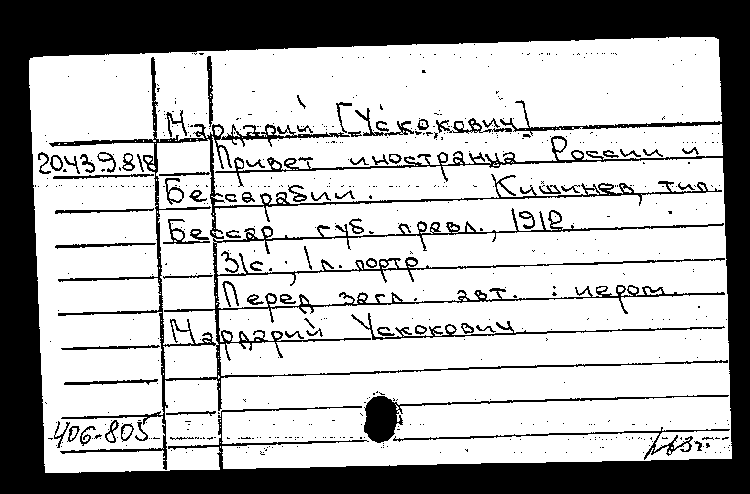 Мардарий [Ускокович]
20.43.9.818 Привет иностранца России и
Бессарабии. Кишинев, тип.
Бессар. губ. правл., 1912.
31с.; 1 л. портр.
Перед загл. авт.: иером.
Мардарий Ускокович
406-805